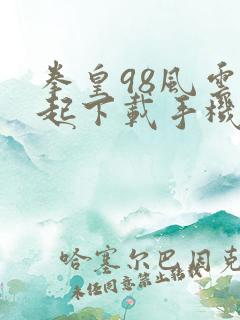 拳皇98風雲
起下載手機
哈塞尔巴因克
未经同意禁止转载